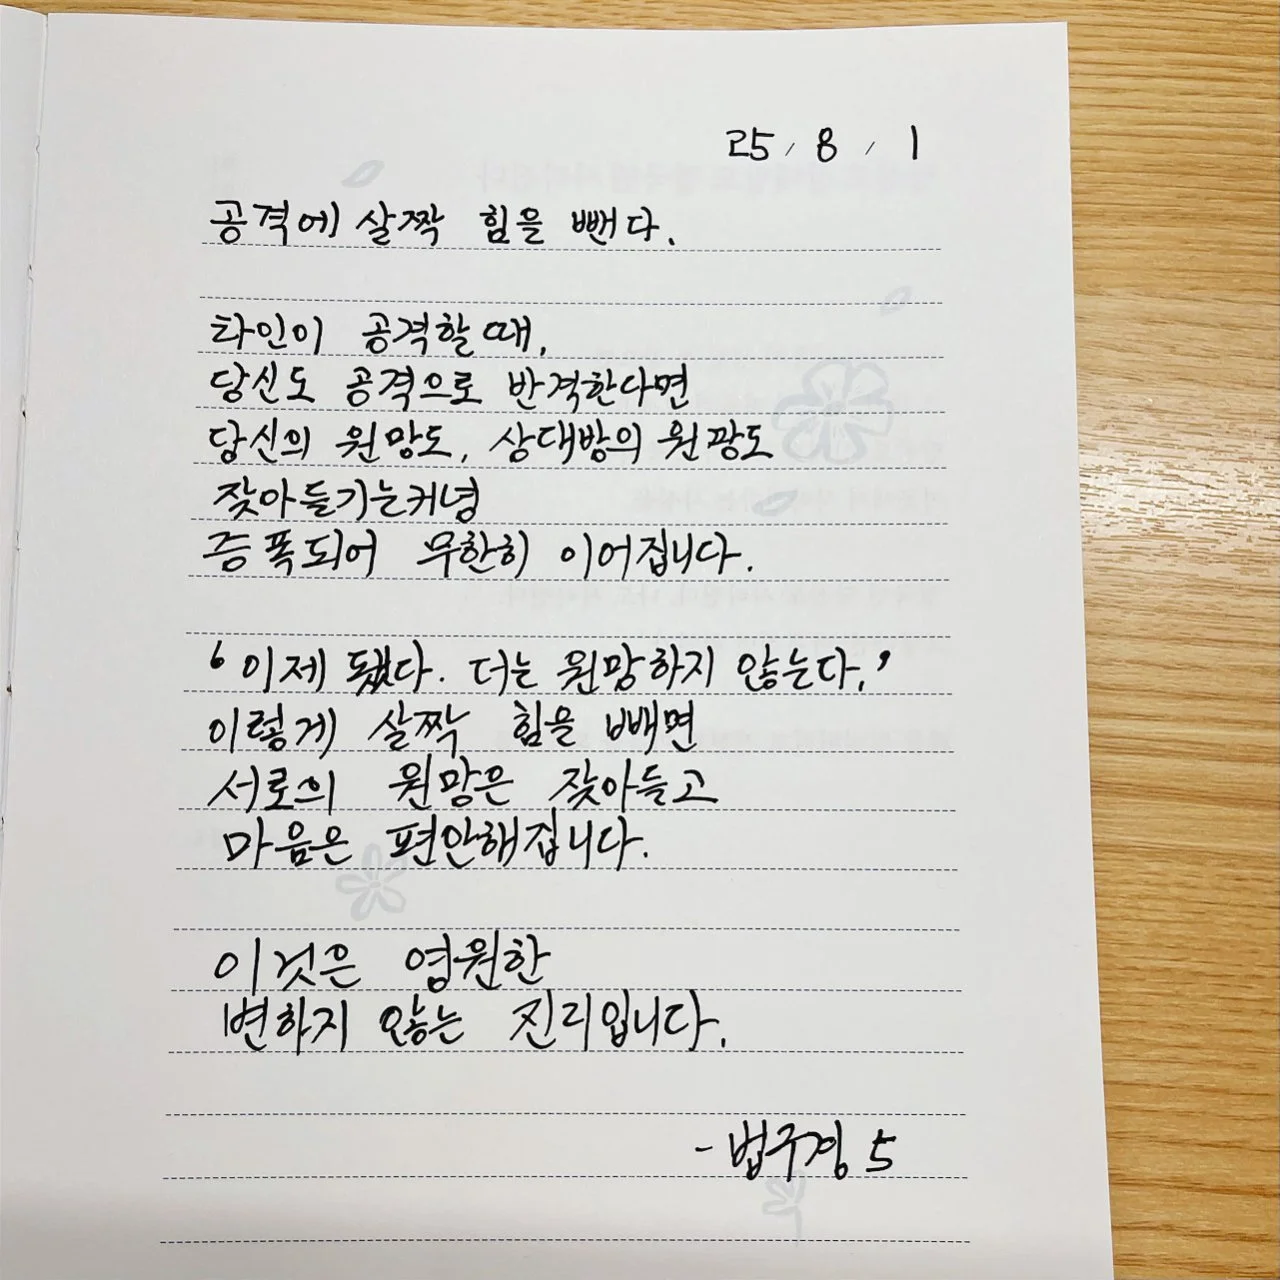 25, 8, 1
공격에 살짝 힘을 뺀다.
타인이 공격할 때,
당신도 공격으로 반격한다면
당신의 원망도, 상대방의 원망도
잦아들기는커녕
증폭되어 무한히 이어집니다.
'이제 됐다. 더는 원망하지 않는다.'
이렇게 살짝 힘을 빼면
서로의 원망은 잦아들고
마음은 편안해집니다.
이것은 영원한
변하지 않는 진리입니다.
- 법구경 5